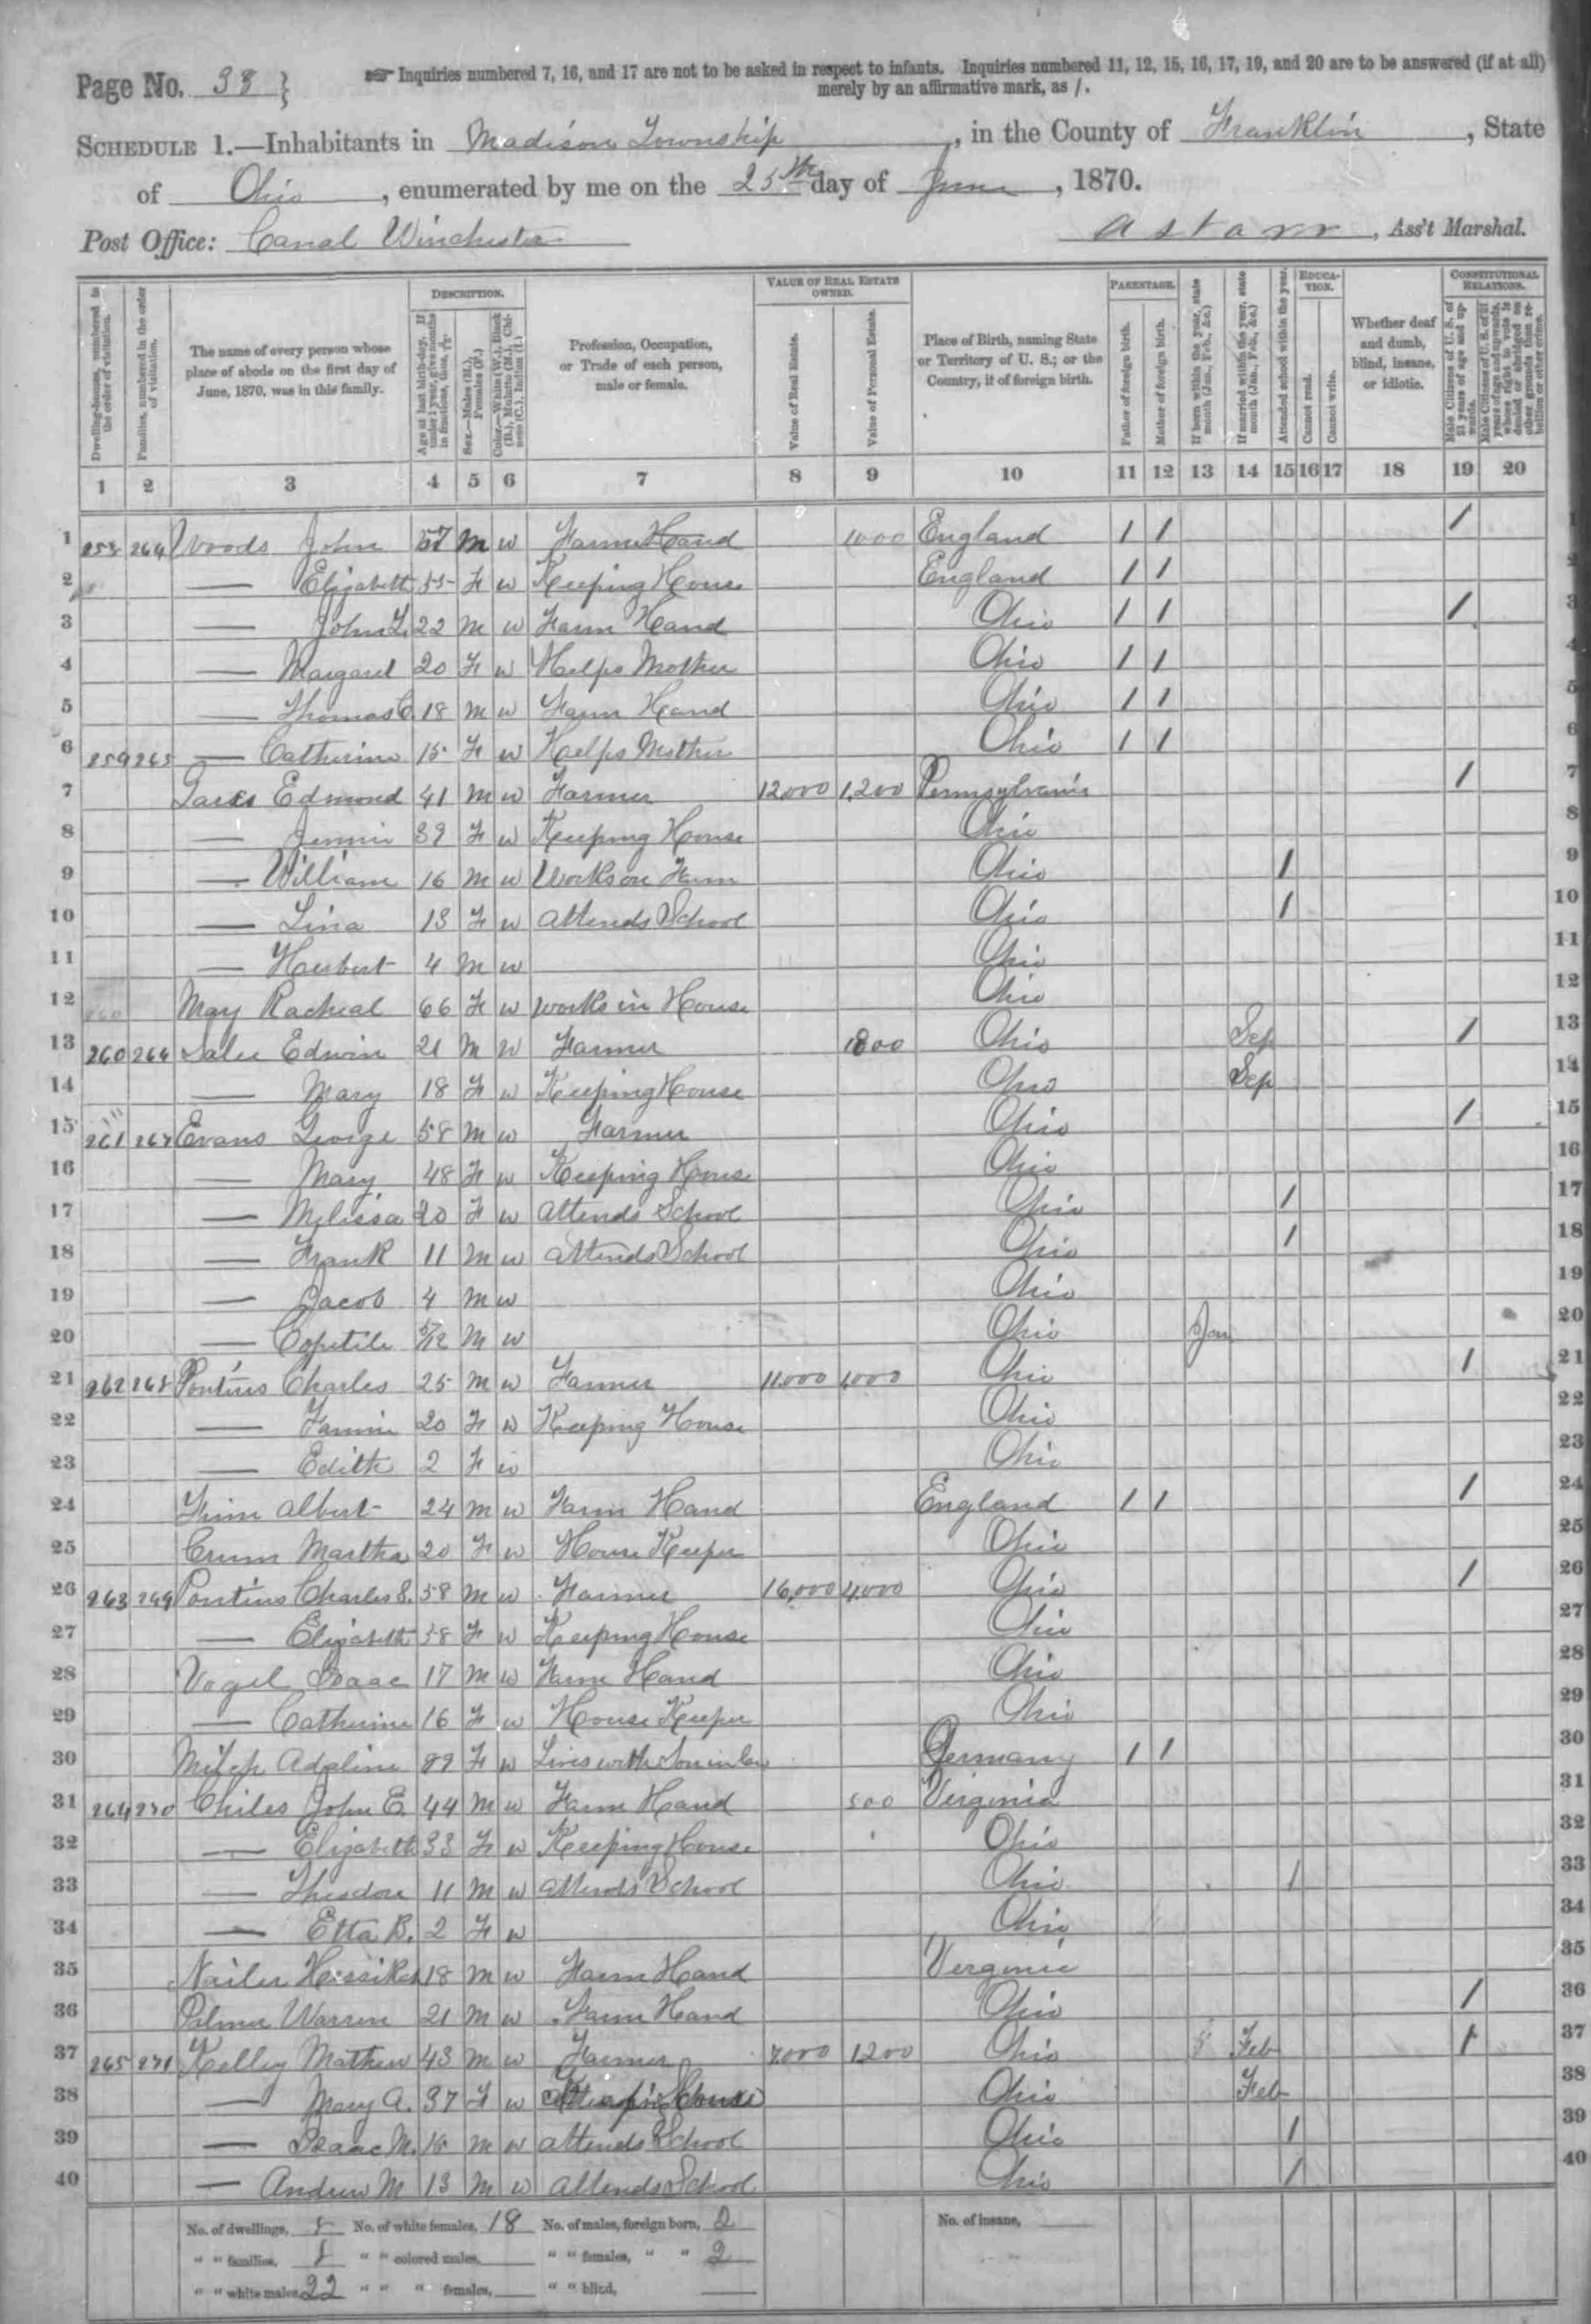 Page No. 38 }
☞ Inquiries numbered 7, 16, and 17 are not to be asked in respect to infants. Inquiries numbered 11, 12, 15, 16, 17, 19, and 20 are to be answered (if at all)
merely by an affirmative mark, as /.
SCHEDULE 1.—Inhabitants in Madison Township, in the County of Franklin, State
of Ohio, enumerated by me on the 25th day of June, 1870.
Post Office: Canal Winchester
A Starr, Ass't Marshal.
Dwelling-houses, numbered in the order of visitation.
Families, numbered in the order of visitation.
The name of every person whose place of abode on the first day of June, 1870, was in this family.
DESCRIPTION.
Age at last birth-day. If under 1 year, give months in fractions, thus, 3/12.
Sex.—Males (M.), Females (F.)
Color.—White (W.), Black (B.), Mulatto (M.), Chinese (C.), Indian (I.)
Profession, Occupation, or Trade of each person, male or female.
VALUE OF REAL ESTATE OWNED.
Value of Real Estate.
Value of Personal Estate.
Place of Birth, naming State or Territory of U. S.; or the Country, if of foreign birth.
PARENTAGE.
Father of foreign birth.
Mother of foreign birth.
If born within the year, state month (Jan., Feb., &c.)
If married within the year, state month (Jan., Feb., &c.)
Attended school within the year.
EDUCATION.
Cannot read.
Cannot write.
Whether deaf and dumb, blind, insane, or idiotic.
CONSTITUTIONAL RELATIONS.
Male Citizens of U. S. of 21 years of age and upwards.
Male Citizens of U. S. of 21 years of age and upwards, whose right to vote is denied or abridged on other grounds than rebellion or other crime.
1 2 3 4 5 6 7 8 9 10 11 12 13 14 15 16 17 18 19 20
1 264 Woods John M W Farm Hand 1000 England / / / 1
2 — Elizabeth 55 F W Keeping House England / / 2
3 — John L. 22 M W Farm Hand Ohio / / / 3
4 — Margaret 20 F W Helps Mother Ohio / / 4
5 — Thomas C 18 M W Farm Hand Ohio / / 5
6 259 265 — Catherine 15 F W Helps Mother Ohio / / 6
7 Edmond 41 M W Farmer 12000 1,200 Pennsylvania / 7
8 — Jennie 39 F W Keeping House Ohio 8
9 — William 16 M W Works on Farm Ohio / 9
10 — Lina 13 F W Attends School Ohio / 10
11 — Herbert 4 M W Ohio 11
12 May Racheal 66 F W Works in House Ohio 12
13 260 266 Edwin 21 M W Farmer 1800 Ohio Sep / 13
14 — Mary 18 F W Keeping House Ohio Sep 14
15 261 267 Evans George 58 M W Farmer Ohio / 15
16 — Mary 48 F W Keeping House Ohio 16
17 — Melissa 20 F W Attends School Ohio / 17
18 — Frank 11 M W Attends School Ohio / 18
19 — Jacob 4 M W Ohio 19
20 — 5/12 M W Ohio Jan 20
21 262 268 Pontius Charles 25 M W Farmer 11,000 1,000 Ohio / 21
22 — Fannie 20 F W Keeping House Ohio 22
23 — Edith 2 F W Ohio 23
24 Albert 24 M W Farm Hand England / / / 24
25 Crum Martha 20 F W House Keeper Ohio 25
26 263 269 Pontius Charles S. 58 M W Farmer 16,000 4,000 Ohio / 26
27 — Elizabeth 58 F W Keeping House Ohio 27
28 Vogel Isaac 17 M W Farm Hand Ohio 28
29 — Catherine 16 F W House Keeper Ohio 29
30 Adaline 89 F W Lives with Son in law Germany / / 30
31 264 270 Chiles John E. 44 M W Farm Hand 500 Virginia 31
32 — Elizabeth 33 F W Keeping House Ohio 32
33 — Theodore 11 M W Attends School Ohio / 33
34 — Etta B. 2 F W Ohio 34
35 18 M W Farm Hand Virginia 35
36 Palmer Warren 21 M W Farm Hand Ohio / 36
37 265 271 Kelley Mathew 43 M W Farmer 7000 1200 Ohio Feb / 37
38 — Mary A. 37 F W Keeping House Ohio Feb 38
39 — Isaac M. 15 M W Attends School Ohio / 39
40 — Andrew M 13 M W Attends School Ohio / 40
No. of dwellings, 8 No. of white females, 18 No. of males, foreign born, 2 No. of insane,
" " families, 8 " " colored males, " " females, " " 2
" " white males, 22 " " " females, " " blind,